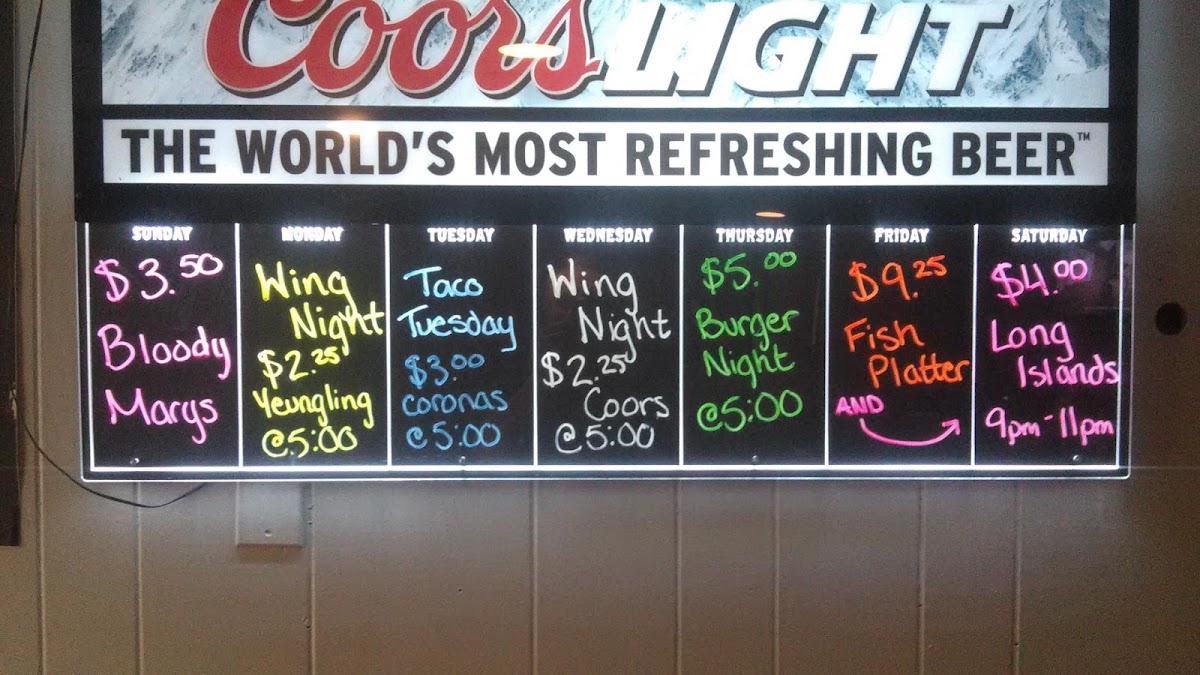 Coors LIGHT
THE WORLD'S MOST REFRESHING BEER™
SUNDAY
$3.50
Bloody
Marys
MONDAY
Wing
Night
$2.25
Yeungling
@5:00
TUESDAY
Taco
Tuesday
$3.00
coronas
@5:00
WEDNESDAY
Wing
Night
$2.25
Coors
@5:00
THURSDAY
$5.00
Burger
Night
@5:00
FRIDAY
$9.25
Fish
Platter
AND
SATURDAY
$4.00
Long
Islands
9pm-11pm